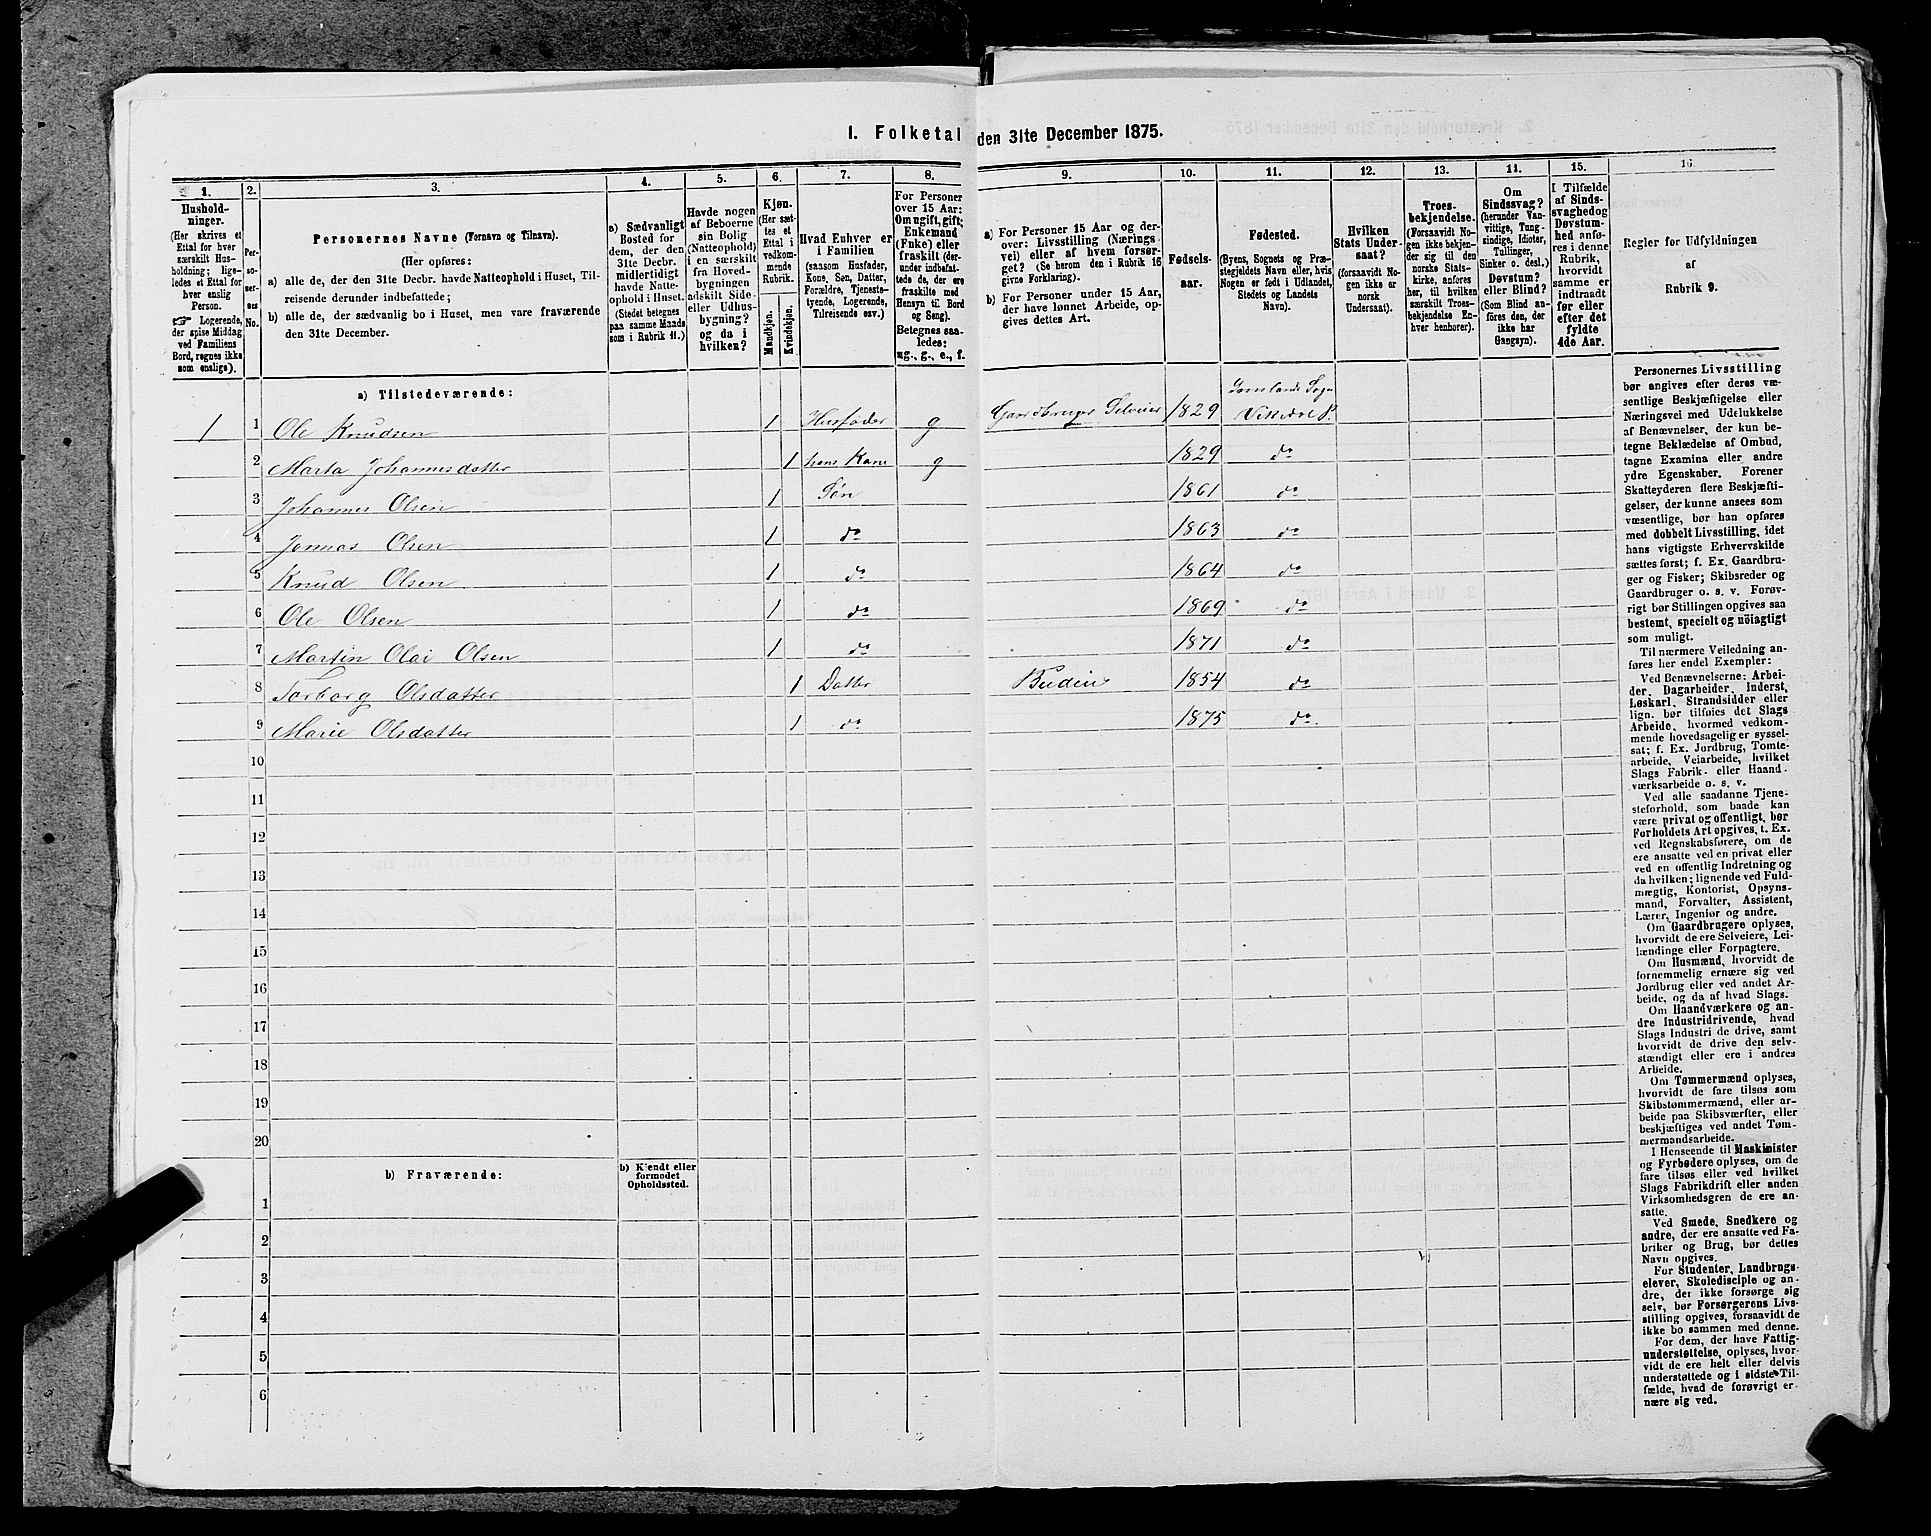 I. Folketal den 31te December 1875.
1. 2. 3. 4. 5. 6. 7. 8. 9. 10. 11. 12. 13. 14. 15. 16.
Husholdninger.
(Her skrives et
Ettal for hver
særskilt Husholdning;
ligeledes et Ettal for
hver enslig
Person.
☞ Logerende,
der spise Middag
ved Familiens
Bord, regnes ikke
som enslige).
Personernes No.
Personernes Navne (Fornavn og Tilnavn).
(Her opføres:
a) alle de, der den 31te Decbr. havde Natteophold i Huset, Tilreisende derunder indbefattede;
b) alle de, der sædvanlig bo i Huset, men vare fraværende
den 31te December.
a) Sædvanligt
Bosted for
dem, der den
31te Decbr.
midlertidigt
havde Natteophold
i Huset.
(Stedet betegnes
paa samme Maade
som i Rubrik 11.)
Havde nogen
af Beboerne
sin Bolig
(Natteophold)
i en særskilt
fra Hovedbygningen
adskilt Side-
eller Udhusbygning?
og da i
hvilken?
Kjøn.
(Her sættes
et
Ettal i
vedkommende
Rubrik.
Mandkjøn.
Kvindekjøn.
Hvad Enhver er
i Familien
(saasom Husfader,
Kone, Søn, Datter,
Forældre, Tjenestetyende,
Logerende,
Tilreisende osv.)
For Personer
over 15 Aar:
Om ugift, gift,
Enkemand
(Enke) eller
fraskilt (derunder
indbefattede
de, der ere
fraskilte med
Hensyn til Bord
og Seng).
Betegnes saaledes:
ug., g., e., f.
a) For Personer 15 Aar og derover:
Livsstilling (Næringsvei)
eller af hvem forsørget?
(Se herom den i Rubrik 16
givne Forklaring).
b) For Personer under 15 Aar,
der have lønnet Arbeide, opgives
dettes Art.
Fødselsaar.
Fødested.
(Byens, Sognets og Præstegjeldets
Navn eller, hvis
Nogen er født i Udlandet,
Stedets og Landets
Navn).
Hvilken
Stats Undersaat?
(forsaavidt Nogen
ikke er
norsk
Undersaat).
Troesbekjendelse.
(Forsaavidt Nogen
ikke bekjender
sig til den
norske Statskirke,
anføres
her, til hvilken
særskilt Troesbekjendelse
Enhver
henhører).
Om
Sindssvag?
(herunder Vanvittige,
Tungsindige,
Idioter,
Tullinger,
Sinker o. desl.)
Døvstum?
eller Blind?
(Som Blind anføres
den, der
ikke har
Gangsyn).
I Tilfælde
af Sindssvaghed
og
Døvstumhed
anføres
i denne
Rubrik,
hvorvidt
samme er
indtraadt
før eller
efter det
fyldte
4de Aar.
Regler for Udfyldningen
af
Rubrik 9.
a) Tilstedeværende:
1 1 Ole Knudsen 1 Husfader g Gaardbruger Selveier 1829 Sogn Vikedal P.
2 Marta Johannesdatter 1 hans Kone g 1829 do
3 Johannes Olsen 1 Søn 1861 do
4 Jonnas Olsen 1 do 1863 do
5 Knud Olsen 1 do 1864 do
6 Ole Olsen 1 do 1869 do
7 Martin Olai Olsen 1 do 1871 do
8 Torborg Olsdatter 1 Datter Budeie 1854 do
9 Marie Olsdatter 1 do 1875 do
10
11
12
13
14
15
16
17
18
19
20
b) Fraværende:
b) Kjendt eller
formodet
Opholdssted.
1
2
3
4
5
6
Personernes Livsstilling
bør angives efter deres væsentlige
Beskjæftigelse eller
Næringsvei med Udelukkelse
af Benævnelser, der kun betegne
Beklædelse af Ombud,
tagne Examina eller andre
ydre Egenskaber. Forener
Skatteyderen flere Beskjæftigelser,
der kunne ansees som
væsentlige, bør han opføres
med dobbelt Livsstilling, idet
hans vigtigste Erhvervskilde
sættes først; f. Ex. Gaardbruger
og Fisker; Skibsreder og
Gaardbruger o. s. v. Forøvrigt
bør Stillingen opgives saa
bestemt, specielt og nøiagtigt
som muligt.
Til nærmere Veiledning anføres
her endel Exempler:
Ved Benævnelserne: Arbeider,
Dagarbeider, Inderst,
Løskarl, Strandsidder eller
lign. bør tilføies det Slags
Arbeide, hvormed vedkommende
hovedsagelig er sysselsat;
f. Ex. Jordbrug, Tomtearbeide,
Veiarbeide, hvilket
Slags Fabrik- eller Haandværksarbeide
o. s. v.
Ved alle saadanne Tjenesteforhold,
som baade kan
være privat og offentligt, bør
Forholdets Art opgives, t. Ex.
ved Regnskabsførere, om de
ere ansatte ved en privat eller
ved en offentlig Indretning og
da hvilken; lignende ved Fuldmægtig,
Kontorist, Opsynsmand,
Forvalter, Assistent,
Lærer, Ingeniør og andre.
Om Gaardbrugere oplyses,
hvorvidt de ere Selveiere, Leilændinge
eller Forpagtere.
Om Husmænd, hvorvidt de
fornemmelig ernære sig ved
Jordbrug eller ved andet Arbeide,
og da af hvad Slags.
Om Haandværkere og andre
Industridrivende, hvad
Slags Industri de drive, samt
hvorvidt de drive den selvstændigt
eller ere i andres
Arbeide.
Om Tømmermænd oplyses,
hvorvidt de fare tilsøs som
Skibstømmermænd, eller arbeide
paa Skibsværfter, eller
beskjæftiges ved andet Tømmermandsarbeide.
I Henseende til Maskinister
og Fyrbødere oplyses, om de
fare tilsøs eller ved hvilket
Slags Fabrikdrift eller anden
Virksomhedsgren de ere ansatte.
Ved Smede, Snedkere og
andre, der ere ansatte ved Fabriker
og Brug, bør dettes
Navn opgives.
For Studenter, Landbrugselever,
Skoledisciple og andre,
der ikke forsørge sig
selv, bør Forsørgerens Livsstilling
opgives, forsaavidt de
ikke bo sammen med denne.
For dem, der have Fattigunderstøttelse,
oplyses, hvorvidt
de ere helt eller delvis
understøttede og i sidste Tilfælde,
hvad de forøvrigt ernære
sig ved.